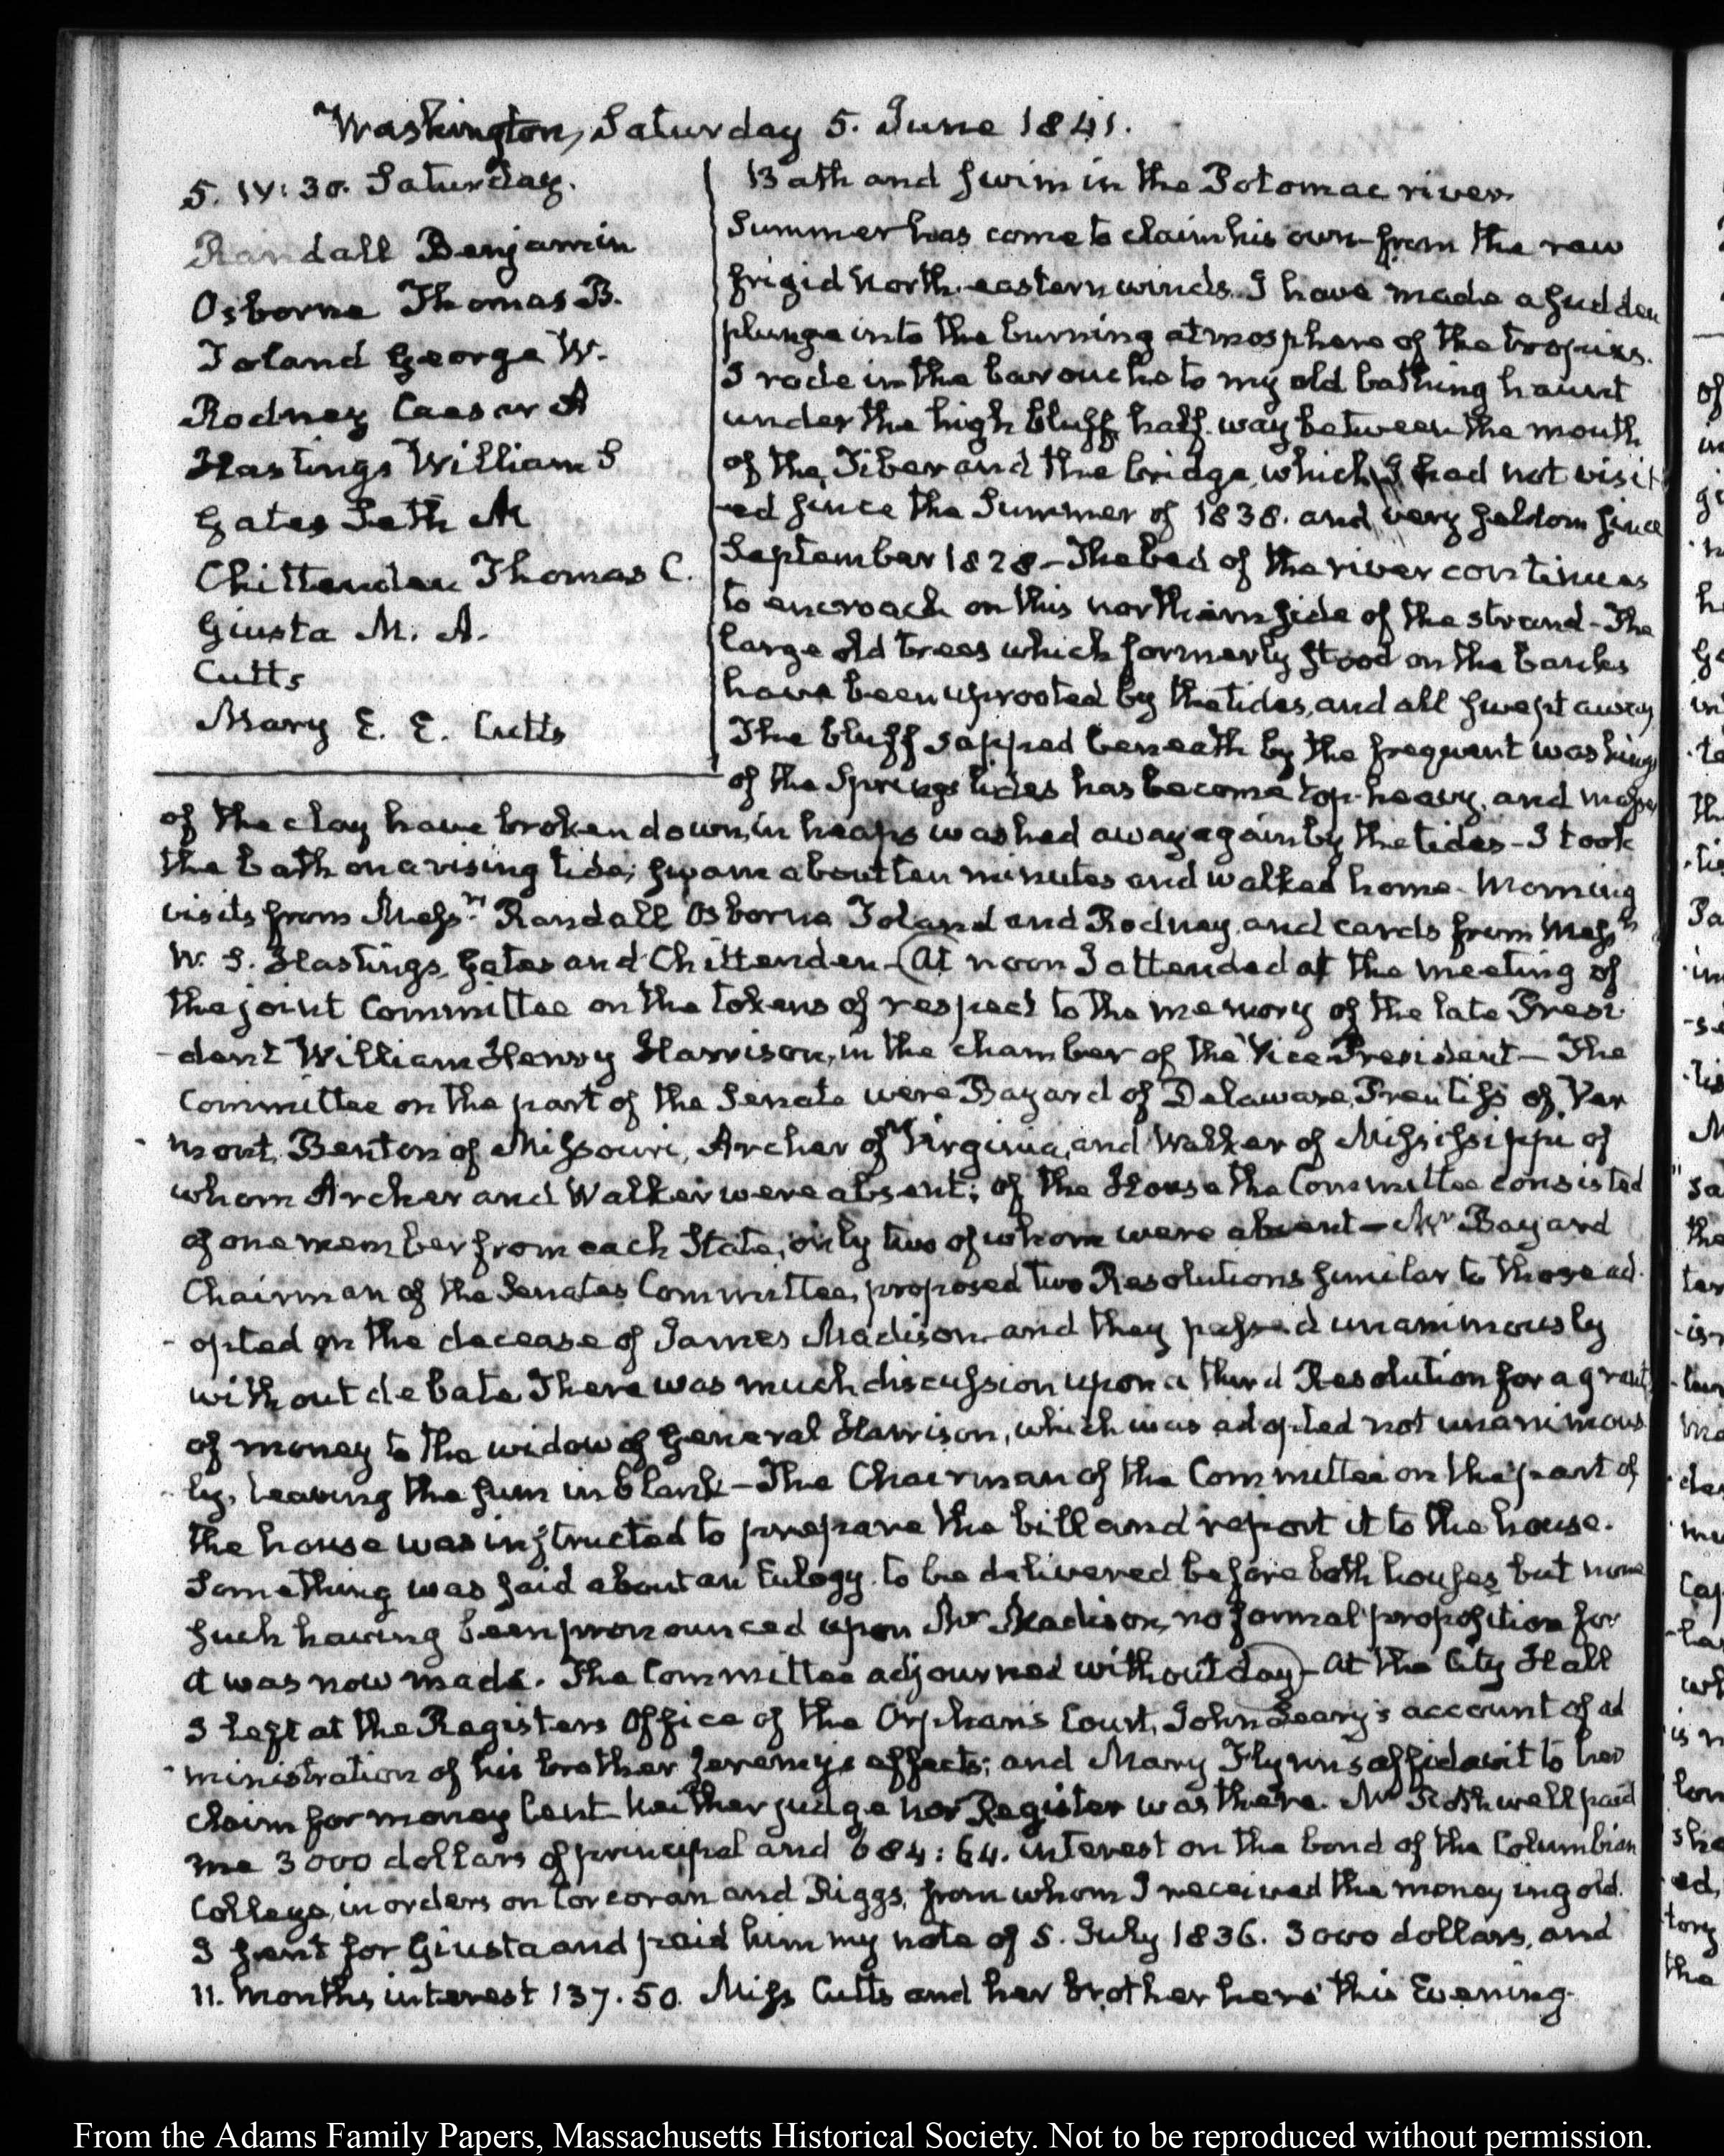 Washington, Saturday 5. June 1841.
5. IV: 30. Saturday.
Randall Benjamin
Osborne Thomas B.
Toland George W.
Rodney Caesar A
Hastings William S
Gates Seth M
Chittenden Thomas C.
Giusta M. A.
Cutts
Mary E. E. Cutts
Bath and swim in the Potomac river.
Summer has come to claim his own from the raw
frigid North-eastern winds. I have made a sudden
plunge into the burning atmosphere of the tropics.
I rode in the barouche to my old bathing haunt
under the high bluff, half-way between the mouth
of the Tiber and the bridge, which I had not visit
-ed since the Summer of 1838. and very seldom since
September 1828 - The bed of the river continues
to encroach on this northern side of the strand - The
large old trees which formerly stood on the banks
have been uprooted by the tides, and all swept away
The bluff sapped beneath by the frequent washings
of the Spring tides has become top-heavy, and masses
of the clay have broken down, in heaps washed away again by the tides - I took
the bath on a rising tide; swam about ten minutes and walked home - Morning
visits from Messrs Randall Osborne Toland and Rodney, and cards from Messrs
W. S. Hastings, Gates and Chittenden - At noon I attended at the meeting of
the joint Committee on the tokens of respect to the memory of the late Presi
-dent William Henry Harrison, in the chamber of the Vice President - The
Committee on the part of the Senate were Bayard of Delaware, Prentiss of Ver
-mont, Benton of Missouri, Archer of Virginia, and Walker of Mississippi of
whom Archer and Walker were absent; of the House the Committee consisted
of one member from each State, only two of whom were absent - Mr Bayard
Chairman of the Senates Committee, proposed two Resolutions similar to those ad-
-opted on the decease of James Madison and they passed unanimously
without debate. There was much discussion upon a third Resolution for a grant
of money to the widow of General Harrison, which was adopted not unanimous
-ly, leaving the sum in blank - The Chairman of the Committee on the part of
the house was instructed to prepare the bill and report it to the house.
Something was said about an Eulogy to be delivered before both houses but none
such having been pronounced upon Mr Madison, no formal proposition for
it was now made. The Committee adjourned without day - At the City Hall
I left at the Registers Office of the Orphan's Court, John Leary's account of ad
-ministration of his brother Jeremy's effects; and Mary Flynns affidavit to her
claim for money lent - Neither judge nor Register was there. Mr Rothwell paid
me 3000 dollars of principal and 684:64. interest on the bond of the Columbian
College, in orders on Corcoran and Riggs, from whom I received the money in gold.
I sent for Giusta and paid him my note of 5. July 1836. 3000 dollars, and
11. months interest 137.50. Miss Cutts and her brother here this Evening.
From the Adams Family Papers, Massachusetts Historical Society. Not to be reproduced without permission.